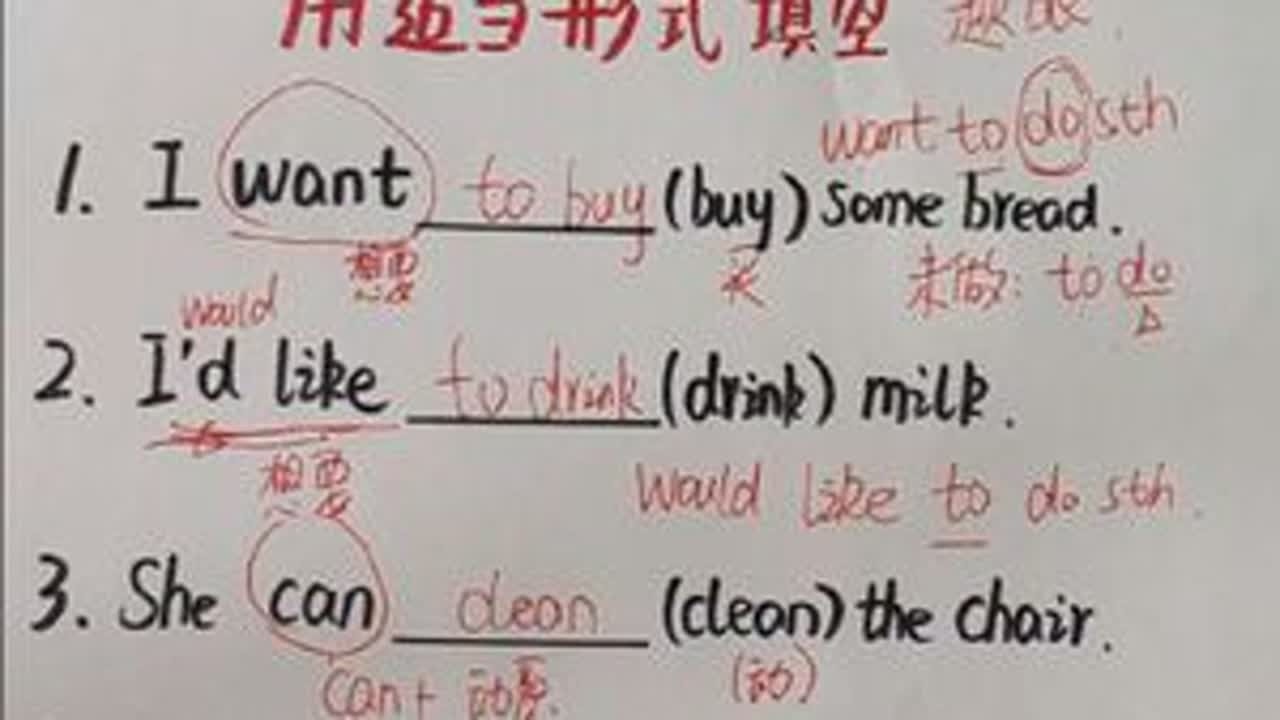 用适当形式填空
want to do sth
1. I want to buy (buy) some bread.
想要 买 未做: to do
would
2. I'd like to drink (drink) milk.
想要
would like to do sth.
3. She can clean (clean) the chair.
can+ 动原. (动)